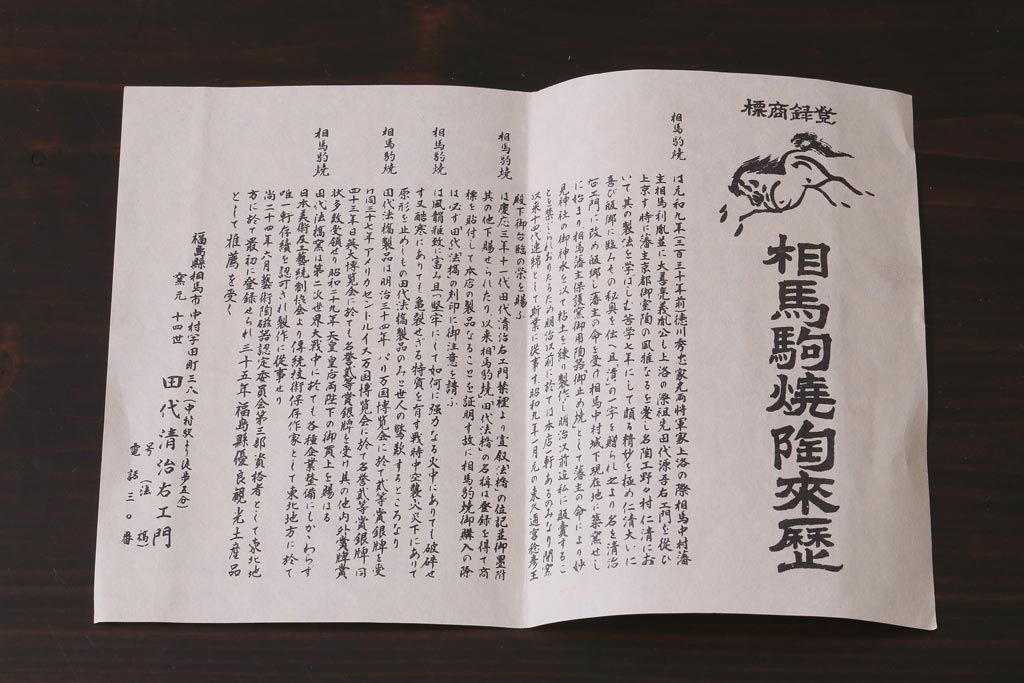 登録商標
相馬駒焼陶来歴
相馬駒焼
は元和九年(三百三十年前)徳川秀忠家光両将軍家上洛の際相馬中村藩
主相馬利胤並に大善亮義胤公も上洛の際祖先田代源吾右エ門を従ひ
上京す時に藩主京都御室陶の風雅なるを愛し名陶工野々村仁清にお
いて其の製法を学ばしむ苦学七年にして頗る精妙を極め仁清大いに
喜び帰郷に臨みその秘奥を伝へ且清の一字を贈られ之より名を清治
右エ門に改め帰郷し藩主の命を受け相馬中村城下現在地に築窯せし
に始まり相馬藩主保護窯御用陶器御止め焼として藩主の命により妙
見神社の御神水を以て粘土を練り製作し明治以前迄私に販売するこ
とを禁じられおりたるため明治以前に於ては本店一軒あるのみなり開窯
以来十四代連綿として斯業に従事す昭和九年一月元の東久邇宮稔彦王
殿下御台臨の栄を賜ふ
相馬駒焼
は慶応三年十一代田代清治右エ門禁裡より宣叙法橋の位記並御墨附
其の他下賜せられたり、以来相馬駒焼「田代法橋」の名称は登録を得て商
標を貼付して本店の製品なることを証明す故に相馬駒焼御購入の際
は必ず田代法橋の刻印に御注意を請ふ
相馬駒焼
は風韻雅致に富み且つ堅牢にして如何に強力なる火中にありても破砕せ
す又酷寒にありても亀裂せざる特質を有す戦時中空襲火災下にありて
原形を止めしもの田代法橋製品のみと世人の驚歎するところなり
相馬駒焼
田代法橋製品は明治三十四年パリ万国博覧会に於て弐等賞銀牌を受
け同三十七年アメリカセントルイス万国博覧会に於て名誉弐等賞銀牌同
四十三年日英大博覧会に於ても名誉弐等賞銀牌を受け其の他内外賞牌賞
状多数受領せり昭和二十九年天皇皇后両陛下の御買上を賜はる
相馬駒焼
田代法橋窯は第二次世界大戦中に於ても各種企業整備にもかゝわらす
日本美術及工藝統制協会より傳統技術保存作家として東北地方に於て
唯一軒存續を認可され製作に従事せり
尚二十四年六月藝術陶磁器認定委員会第三部資格者として東北地
方に於て最初に登録せられ三十五年福島縣優良観光土産品
として推薦を受く
福島縣相馬市中村字田町三八(中村駅より徒歩五分)
窯元 十四世 田代清治右エ門
号(法橋)
電話三〇番